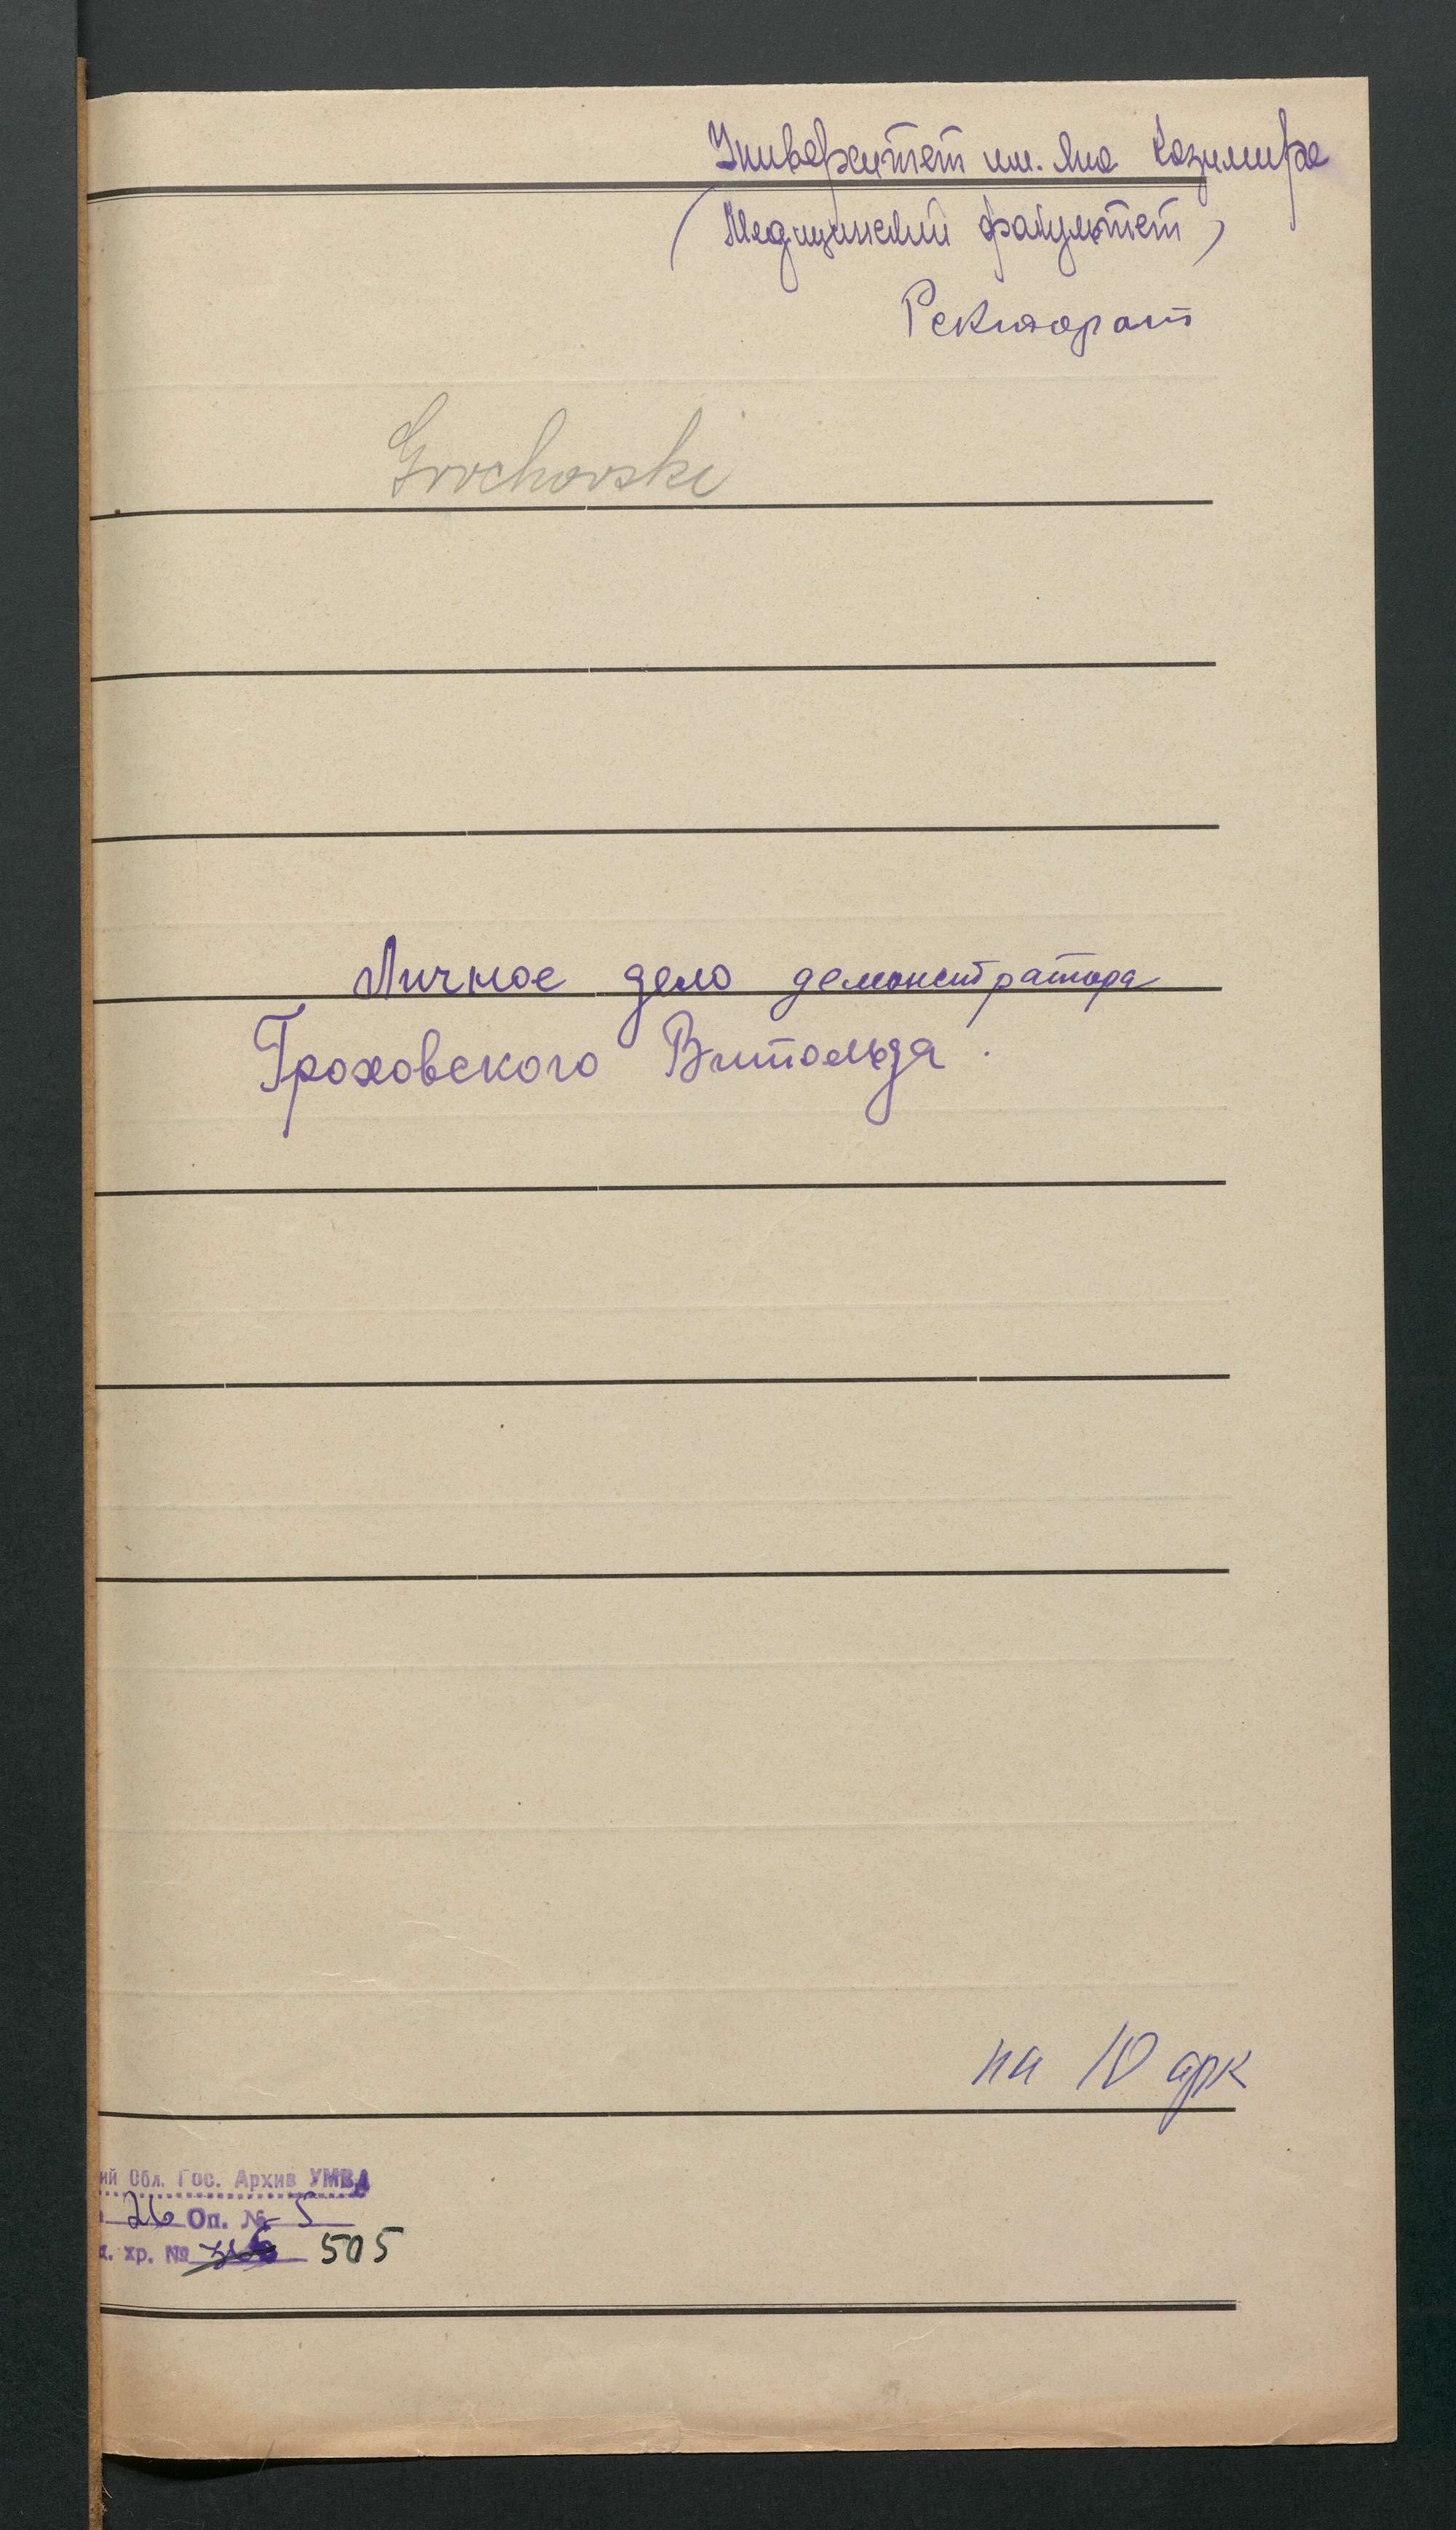 Университет им. Яна Казимира
(Медицинский факультет)
Ректорат
Grochovski
Личное дело демонстратора
Гроховского Витольда.
на 10 арк
ий Обл. Гос. Архив УМВД
26 Оп. № 5
д. хр. № 505